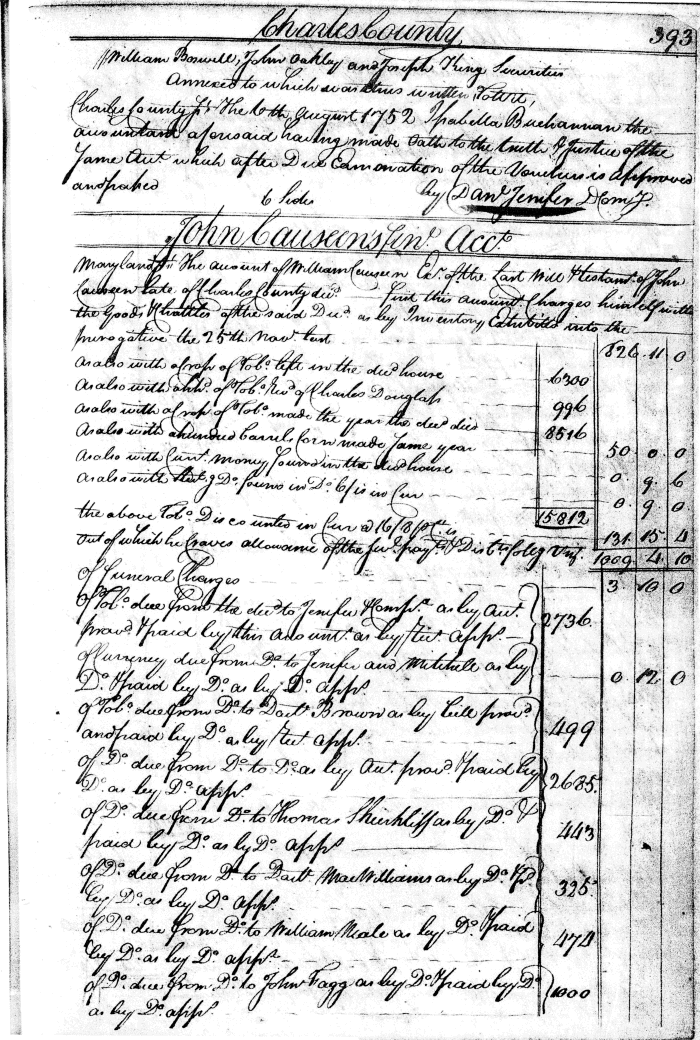 Charles County 393
William Boswell, John Oakley and Joseph King Securities
Annexed to which was thus written Towit,
Charles County Js The 6th August 1752 Isabella Buchannan the
accountant aforesaid having made Oath to the truth & Justice of the
Same Acct which after Due Examonation of the Vouchers is approved
and passed 6 Sides by Danl Jenifer D Comy
John Causeen's Acct
Maryland Js The account of William Causeen Exr of the Last Will & testamt of John
Causeen late of Charles County decd First this accountt Charges himself with
the Goods & Chattles of the said Decd as by Inventory Exhibited into the
prerogative the 25th Novr last 826. 11. 0
as also with a Crop of Tobo left in the decd house 6300
as also with of Tobo Recd of Charles Douglass 996
as also with a Crop of Tobo made the year the decd died 8516
as also with a hundred barrels Corn made Same year 50. 0. 0
as also with Curt money found in the decd house 0. 9. 6
as also with Do found in Do is in Cur 0. 9. 0
15812
the above Tobo Discounted in Cur a 16/8 pCt is 131. 15. 4
out of which he Craves allowance of the paymts & Disbts following Vizt 1009. 4. 10
Of Funeral Charges 3. 10. 0
Of Tobo due from the decd to Jenifer & Compy as by Acct
provd & paid by this Accountt as by appr 2736.
Of Currency due from Do to Jenifer and Mitchell as by
Do & paid by Do as by Do appr 0. 12. 0
Of Tobo due from Do to Brown as by bill provd
and paid by Do as by appr 499
Of Do due from Do to Do as by Acct provd & paid by
Do as by Do appr 2685.
Of Do due from Do to Thomas as by Do &
paid by Do as by Do appr 443
Of Do due from Do to MacWilliams as by Do & pd
by Do as by Do appr 325
Of Do due from Do to William Neale as by Do & paid
by Do as by Do appr 474
Of Do due from Do to John Fagg as by Do & paid by Do
as by Do appr 1000